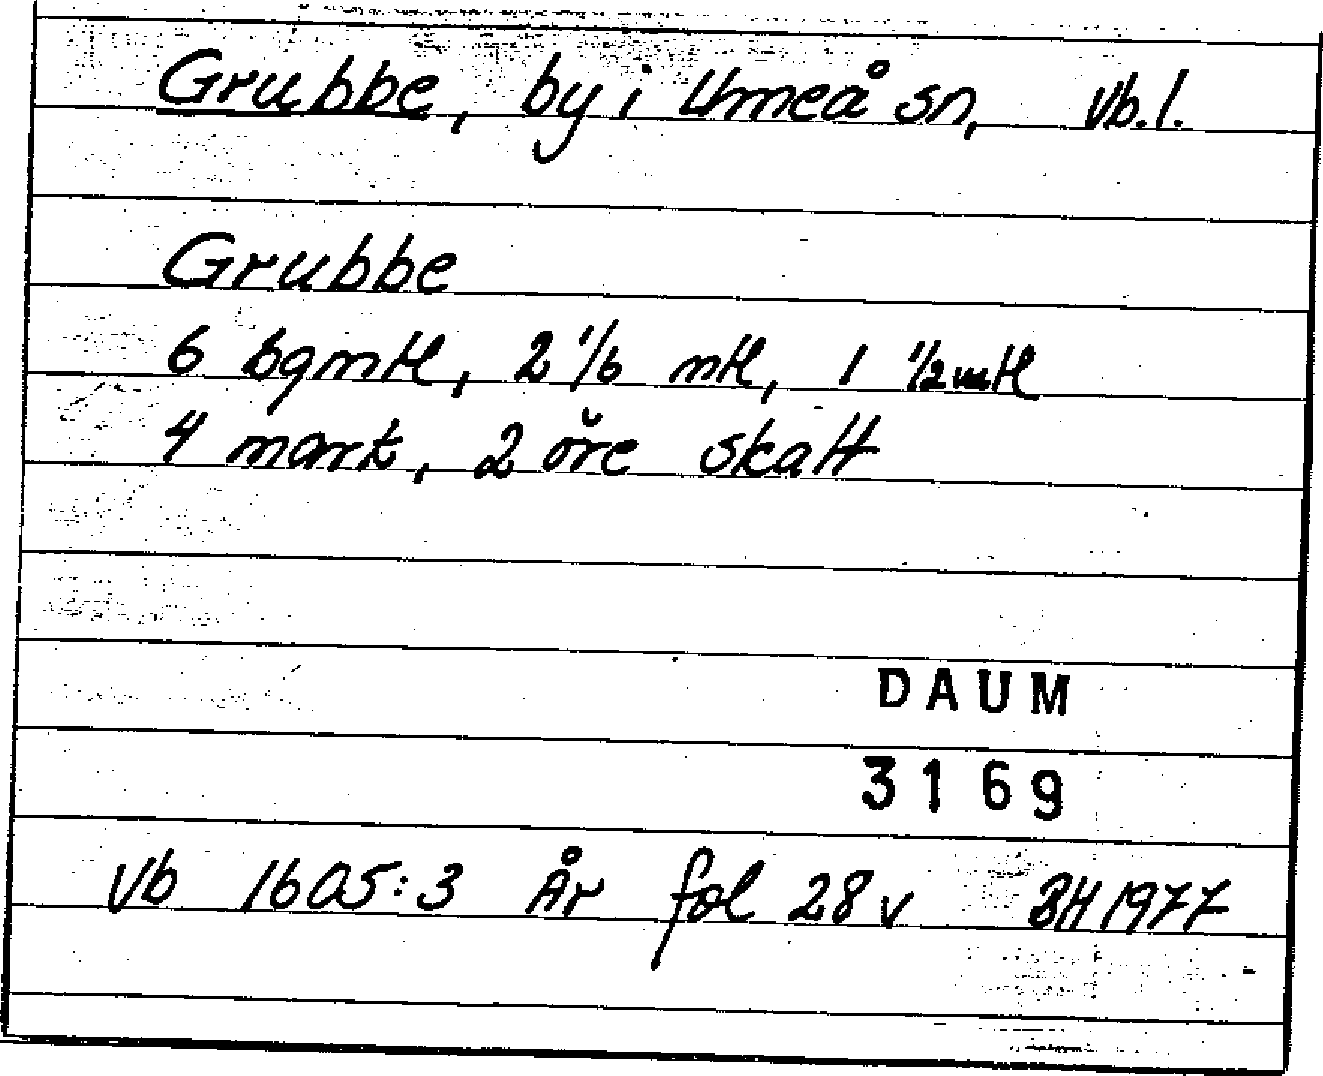 Grubbe, by i Umeå sn, Vb.l.
Grubbe
6 bgmtl, 2 1/6 mtl, 1 1/2 mtl
4 mark, 2 öre skatt
DAUM
3169
Vb 1605:3 År fol 28 v BH 1977